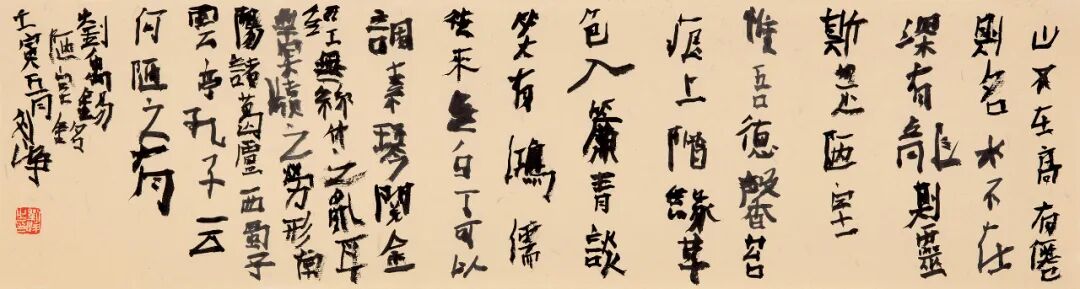 山不在高有僊
則名水不在
深有龍則靈
斯是陋室
惟吾德馨苔
痕上階緑草
色入簾青談
笑有鴻儒
往来无白丁可以
調素琴閱金
經無絲竹之亂耳
無案牘之勞形南
陽諸葛廬西蜀子
雲亭孔子云
何陋之有
劉禹錫
陋室銘
壬寅五月刘